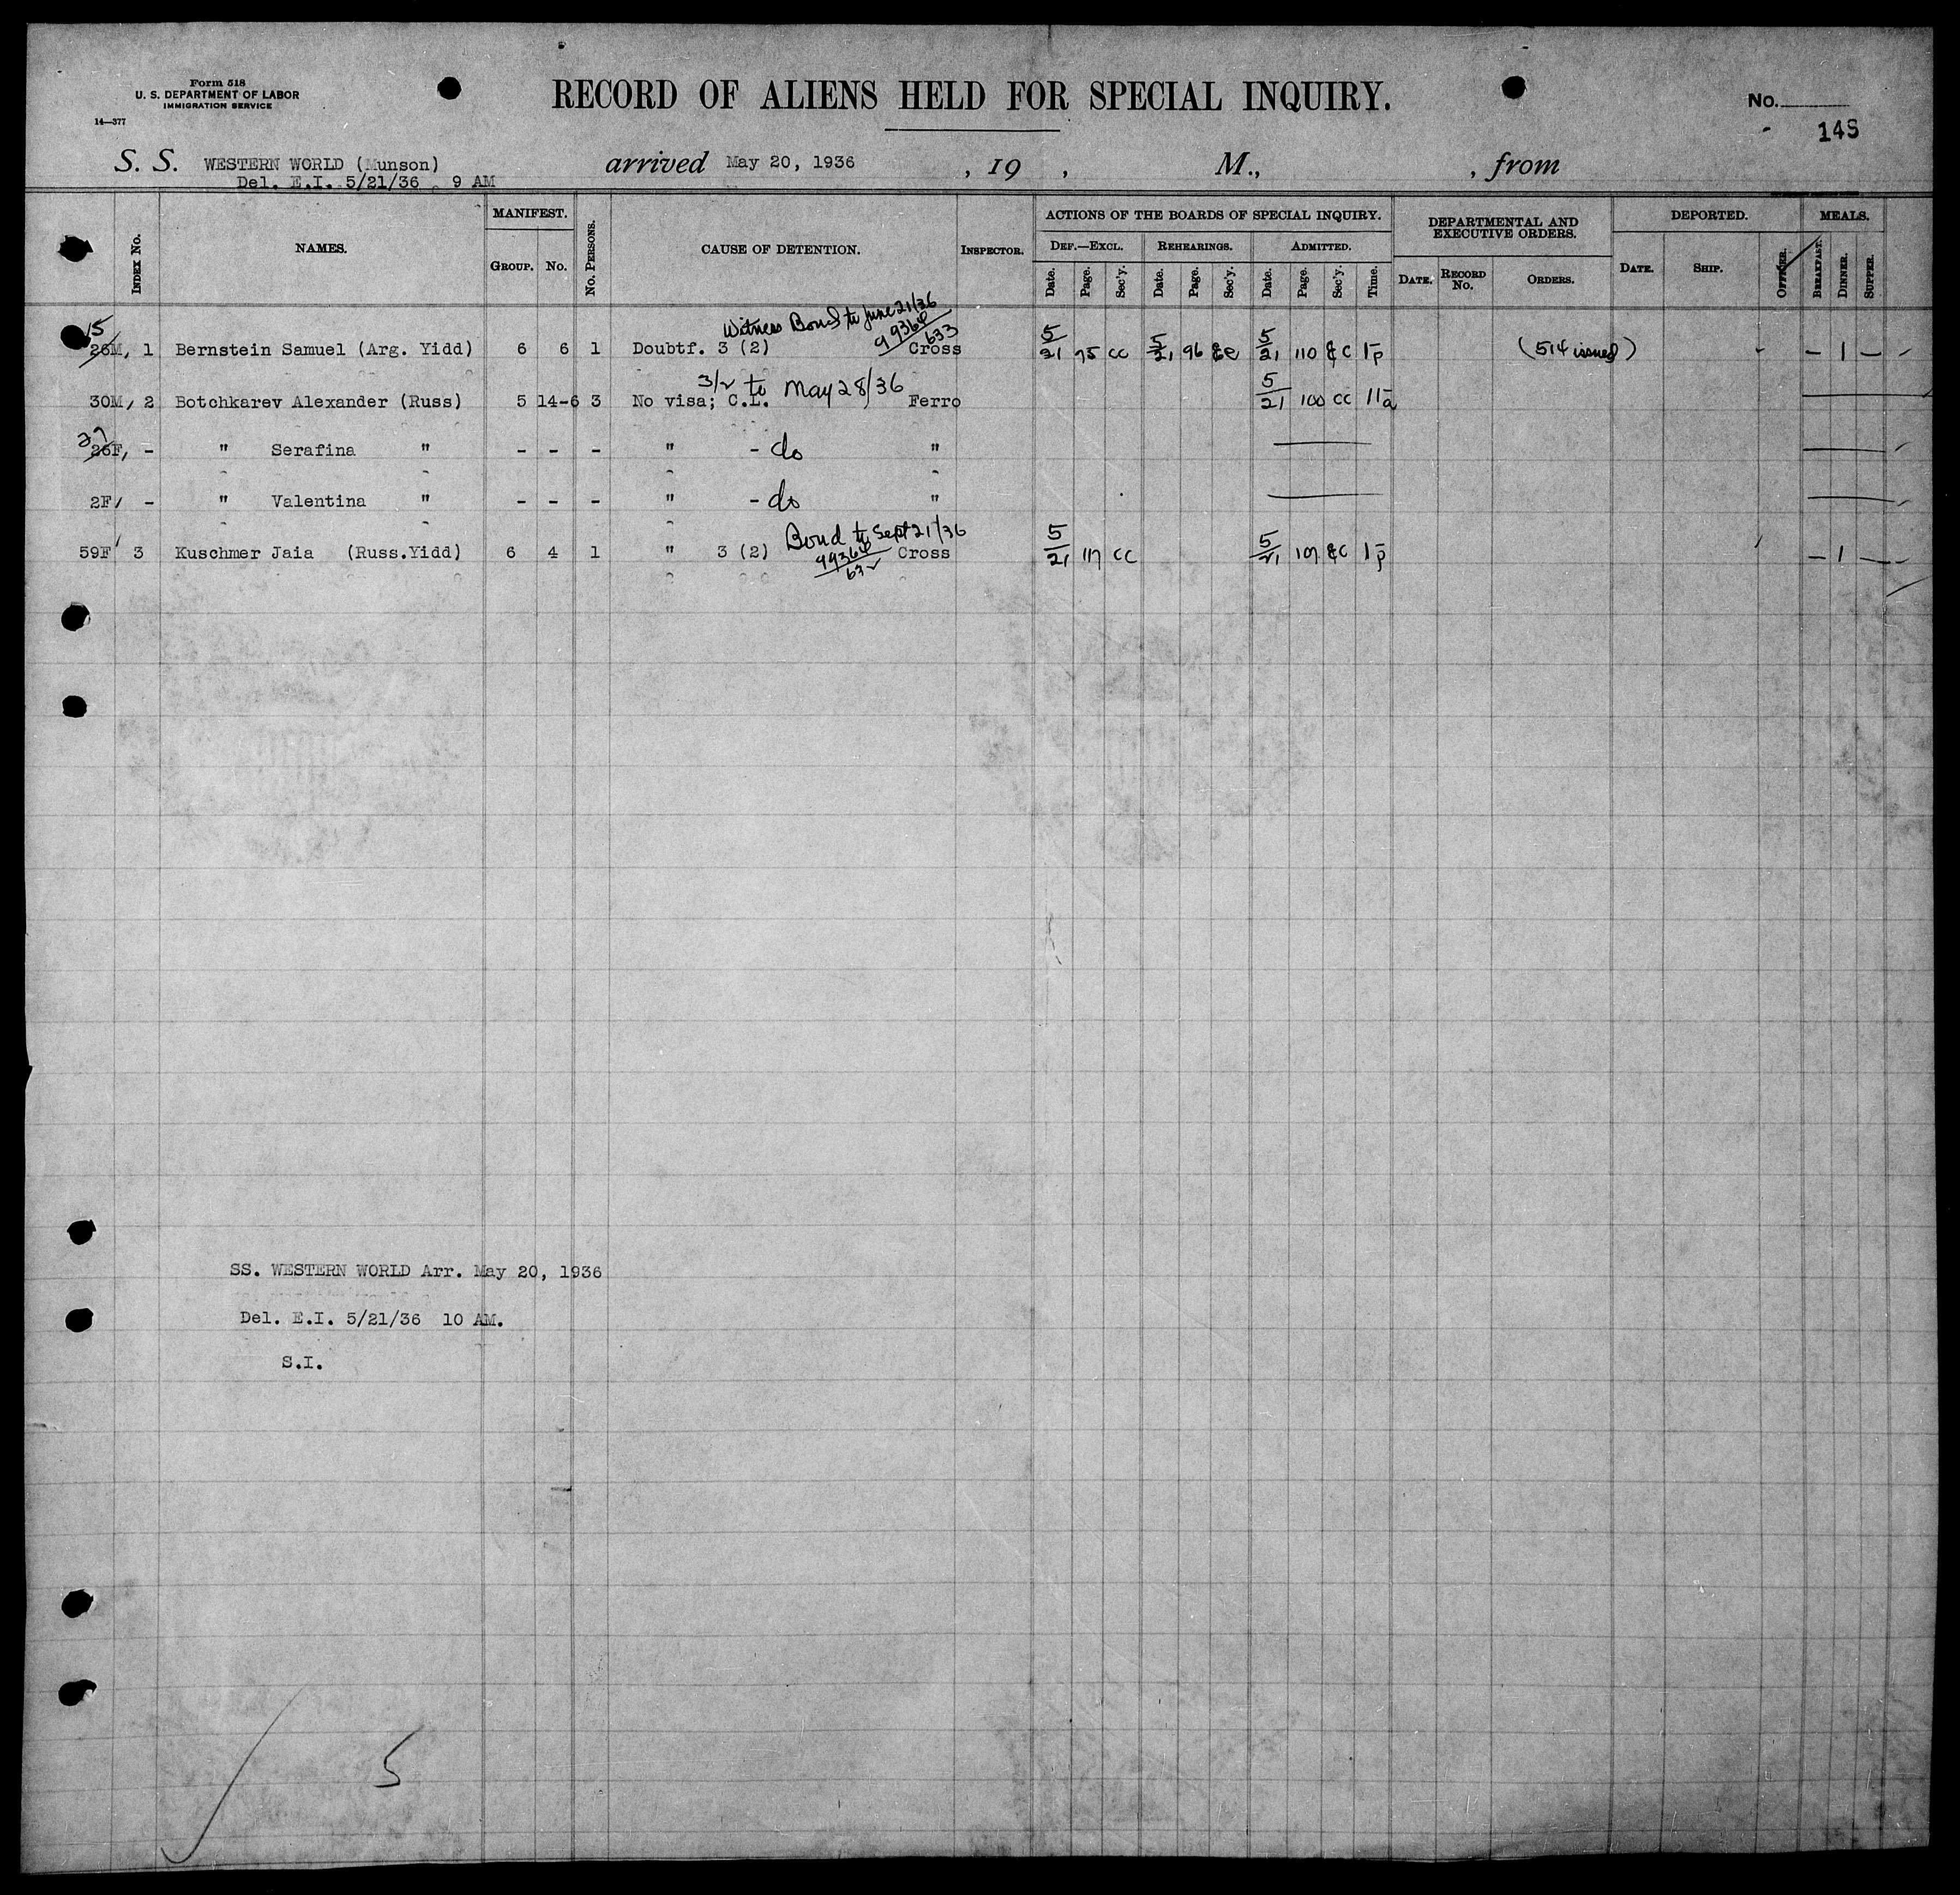 Form 518
U. S. DEPARTMENT OF LABOR
IMMIGRATION SERVICE
14—377
RECORD OF ALIENS HELD FOR SPECIAL INQUIRY.
No.
145
S. S. WESTERN WORLD (Munson) arrived May 20, 1936 , 19 , M., , from
Del. E.I. 5/21/36 9 AM
INDEX No. NAMES. MANIFEST. No. PERSONS. CAUSE OF DETENTION. INSPECTOR. ACTIONS OF THE BOARDS OF SPECIAL INQUIRY. DEPARTMENTAL AND EXECUTIVE ORDERS. DEPORTED. MEALS.
GROUP. No. DEF.—EXCL. REHEARINGS. ADMITTED.
Date. Page. Sec'y. Date. Page. Sec'y. Date. Page. Sec'y. Time. DATE. RECORD No. ORDERS. DATE. SHIP. OFFICER. BREAKFAST. DINNER. SUPPER.
Witness Bond to June 21/36
99366/633
15
26M, 1 Bernstein Samuel (Arg. Yidd) 6 6 1 Doubtf. 3 (2) Cross 5/21 75 cc 5/21 96 5/21 110 &c 1p (514 issued) – 1 –
3/2 to May 28/36
30M, 2 Botchkarev Alexander (Russ) 5 14-6 3 No visa; C.L. Ferro 5/21 100 cc 11a
27
26F, - " Serafina " - - - " - do "
2F, - " Valentina " - - - " - do "
Bond to Sept 21/36
59F 3 Kuschmer Jaia (Russ.Yidd) 6 4 1 " 3 (2) Cross 5/21 117 cc 5/21 107 &c 1p – 1 –
99366/632
SS. WESTERN WORLD Arr. May 20, 1936
Del. E.I. 5/21/36 10 AM.
S.I.
5